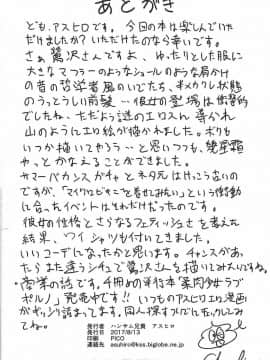 あとがき
ども、アスヒロです。今回の本は楽しんでいた
だけましたか?いただけたのなら幸いです。
さぁ鷺沢さんですよ、ゆったりとした服に
大きなマフラーのようなショールのような肩かけ
の昔の哲学者風のいでたち、半メカクレ状態
のうっとうしい前髪…彼女の登場は衝撃的
でしたね、ただよう謎のエロスに導かれ
山のようにエロ絵が描かれました。ボクも
いつか描いてやろう…と思いつつも、幾星霜
やっとかなえることができました。
サマーバカンスガチャとネタ元はけっこう古いの
ですが、「マイクロビキニを着せてみたい」という衝動
に合ったイベントはそれだけだったのです。
彼女の性格とさらなるフェティッシュさを考えた
結果、ワイシャツも付いてきました。
いいコーデになったかと思います。チャンスがあっ
たらまた違うシチュで鷺沢さんを描いてみたいですね。
商業の話です。4冊めの単行本「
ポルノ」発売中です!!いつものアスヒロエロ漫画
がギッシリ詰まってます。
てね。
発行者 ハンサム兄貴 アスヒロ
発行日 2017/8/13
印刷 PICO
連絡先 asuhiro@kss.biglobe.ne.jp